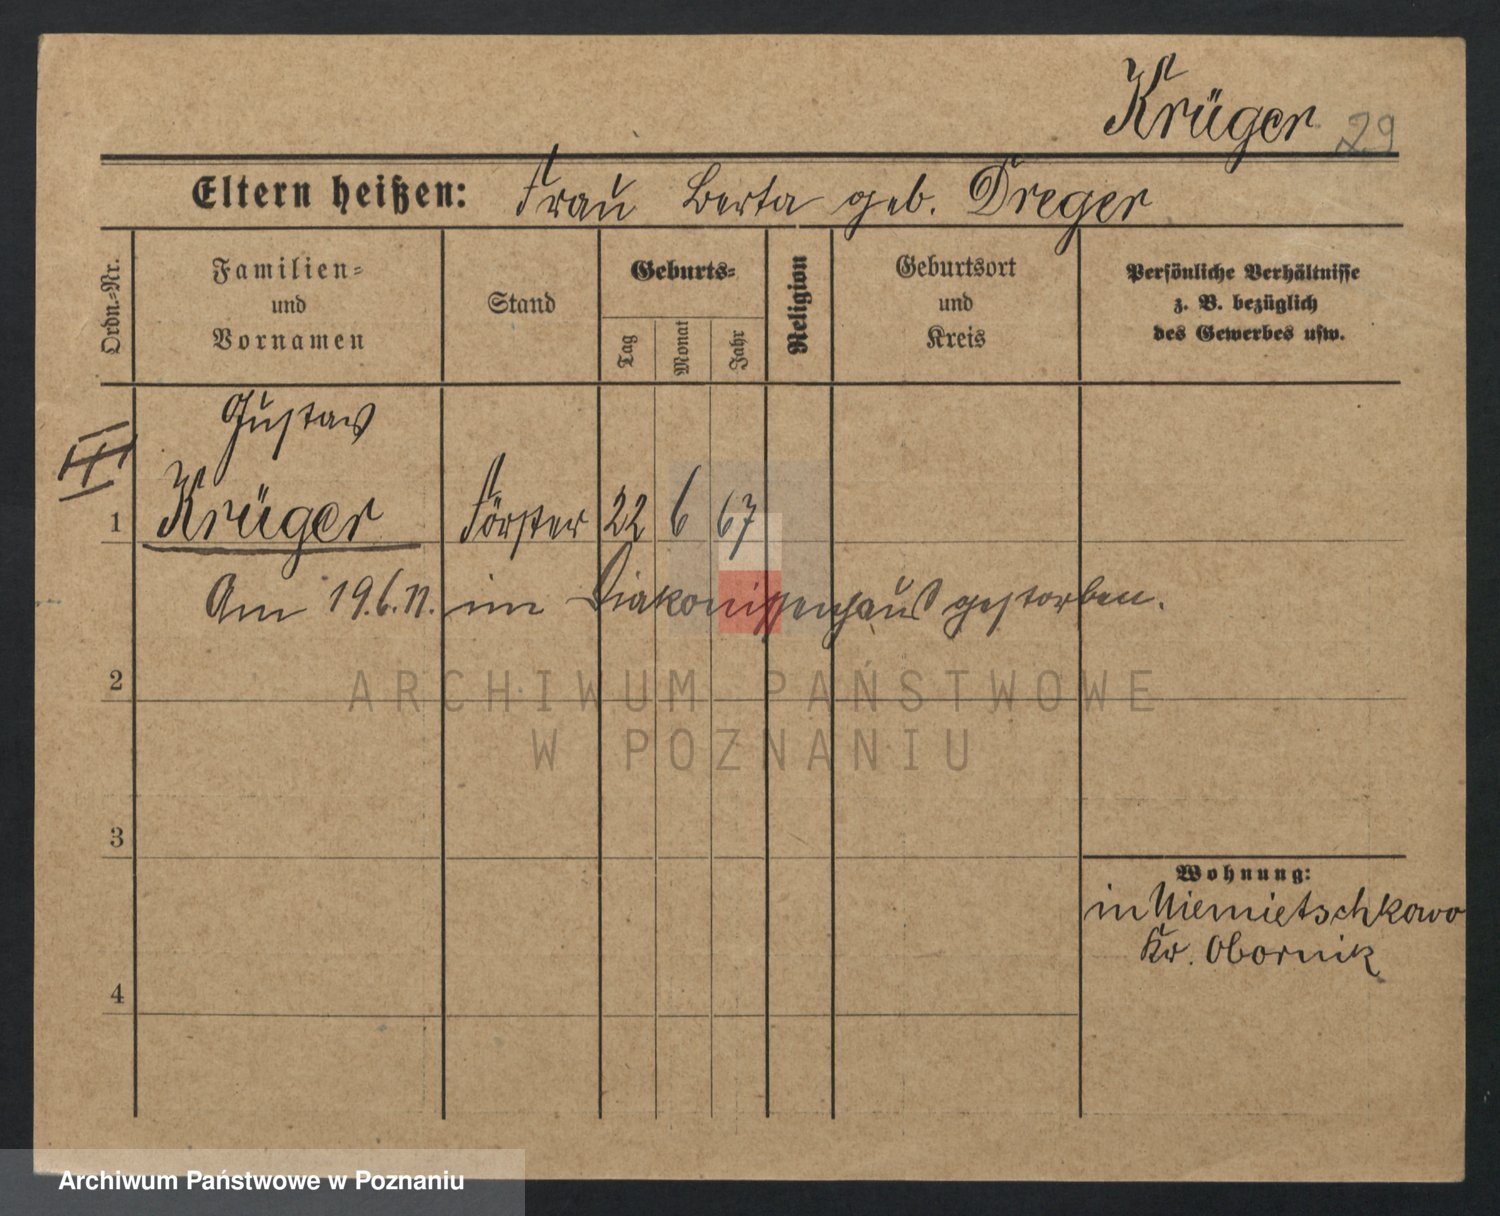 Krüger 29
Eltern heißen: Frau Berta geb. Dreger
Ordn.-Nr.
Familien-
und
Vornamen
Stand
Geburts-
Tag
Monat
Jahr
Religion
Geburtsort
und
Kreis
Persönliche Verhältnisse
z. B. bezüglich
des Gewerbes usw.
III
Gustav
1 Krüger Förster 22 6 67
Am 19.6.11. im Diakonissenhaus gestorben.
2
3
Wohnung:
in Niemietschkowo
Kr. Obornik
4
ARCHIWUM PAŃSTWOWE
W POZNANIU
Archiwum Państwowe w Poznaniu